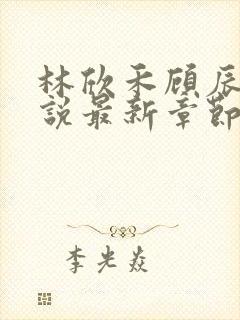 林欣禾顾辰
說最新章節
李光焱